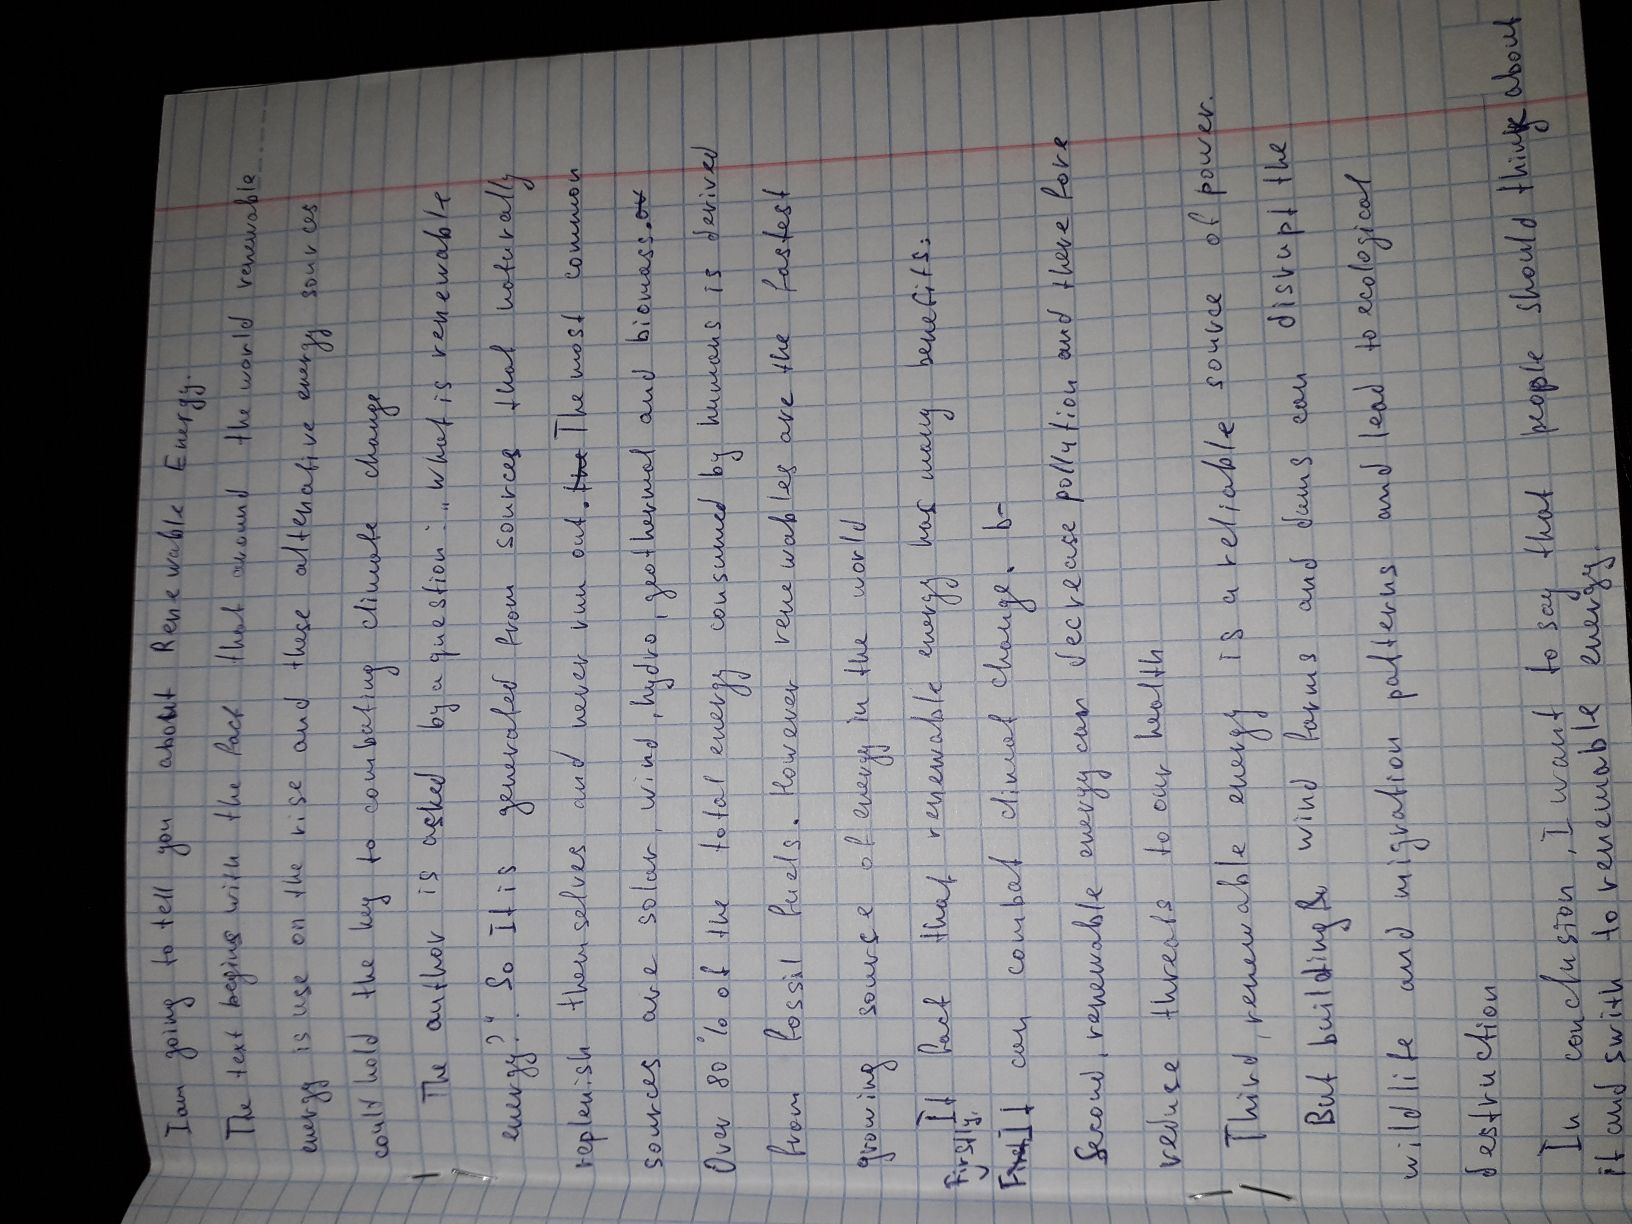 I am going to tell you about Renewable Energy.
The text begins with the fact that around the world renewable
energy is use on the rise and these alternative energy sources
could hold the key to combating climate change
The author is asked by a question: „what is renewable
energy?" So It is generated from sources that naturally
replenish themselves and never run out. The most common
sources are solar, wind, hydro, geothermal and biomass.
Over 80% of the total energy consumed by humans is derived
from fossil fuels. However renewables are the fastest
growing sourse of energy in the world
It fact that renewable energy has many benefits:
Firstly, It can combat climat change. b-
Second, renewable energy can decrease pollution and therefore
reduse threats to our health
Third, renewable energy is a reliable source of power.
But building wind farms and dams can disrupt the
wildlife and migration patterns and lead to ecological
destruction
In conclusion, I want to say that people should think about
it and swith to renewable energy.